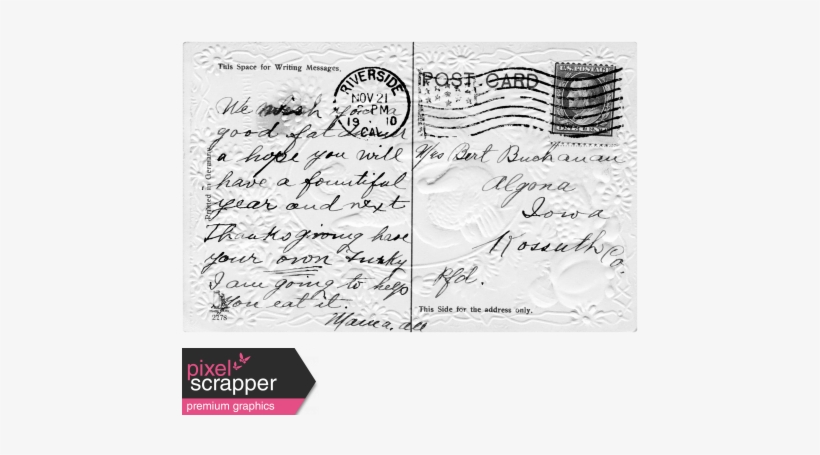 This Space for Writing Messages.
RIVERSIDE
NOV 21
PM
19 10
CAL.
POST CARD
We wish you a
good fat
a hope you will
have a fountiful
year and next
Thanksgiving have
your own Turky
I am going to help
you eat it.
Mama.
Printed in Germany
2278
Mrs Bert Buchanan
Algona
Iowa
Kossuth Co.
Rfd.
This Side for the address only.
pixel
scrapper
premium graphics